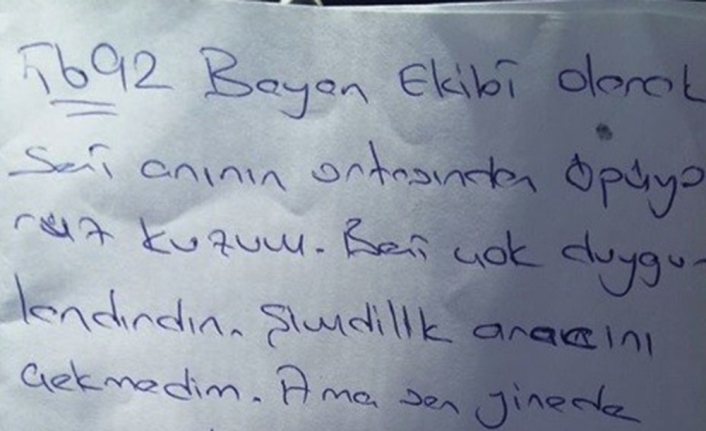 5692 Bayan Ekibi olarak
Seni anının ortasından öpüyo
ruz kuzum. Beni çok duygu-
landırdın. Şimdilik aracını
Çekmedim. Ama sen yinede